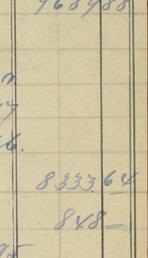 768988.
n
16.
8333.64
848_
95